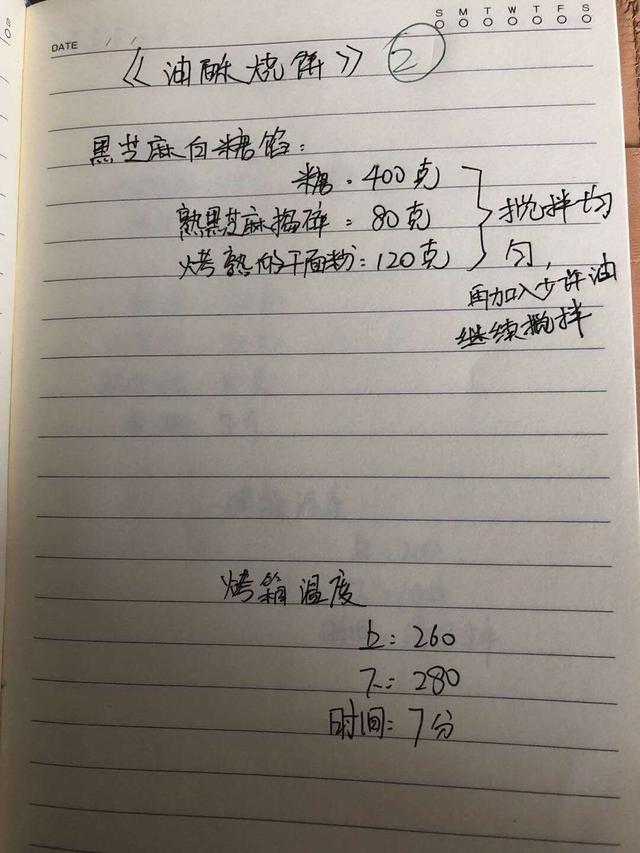 S M T W T F S
DATE / /
《油酥烧饼》 2
黑芝麻白糖馅:
糖:400克
熟黑芝麻捣碎:80克
烤熟的干面粉:120克
搅拌均
匀,
再加入少许油
继续搅拌
烤箱温度
上:260
下:280
时间:7分